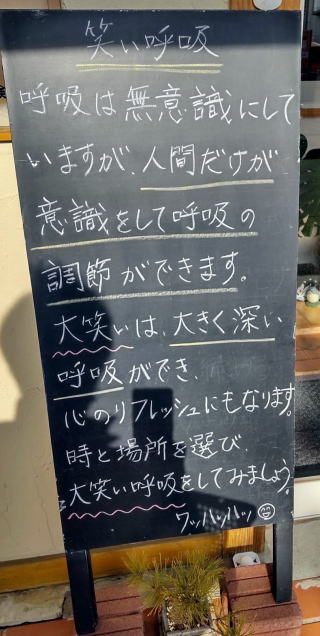 笑い呼吸
呼吸は無意識にして
いますが、人間だけが
意識をして呼吸の
調節ができます。
大笑いは、大きく深い
呼吸ができ、
心のリフレッシュにもなります。
時と場所を選び、
大笑い呼吸をしてみましょう。
ワッハッハッ